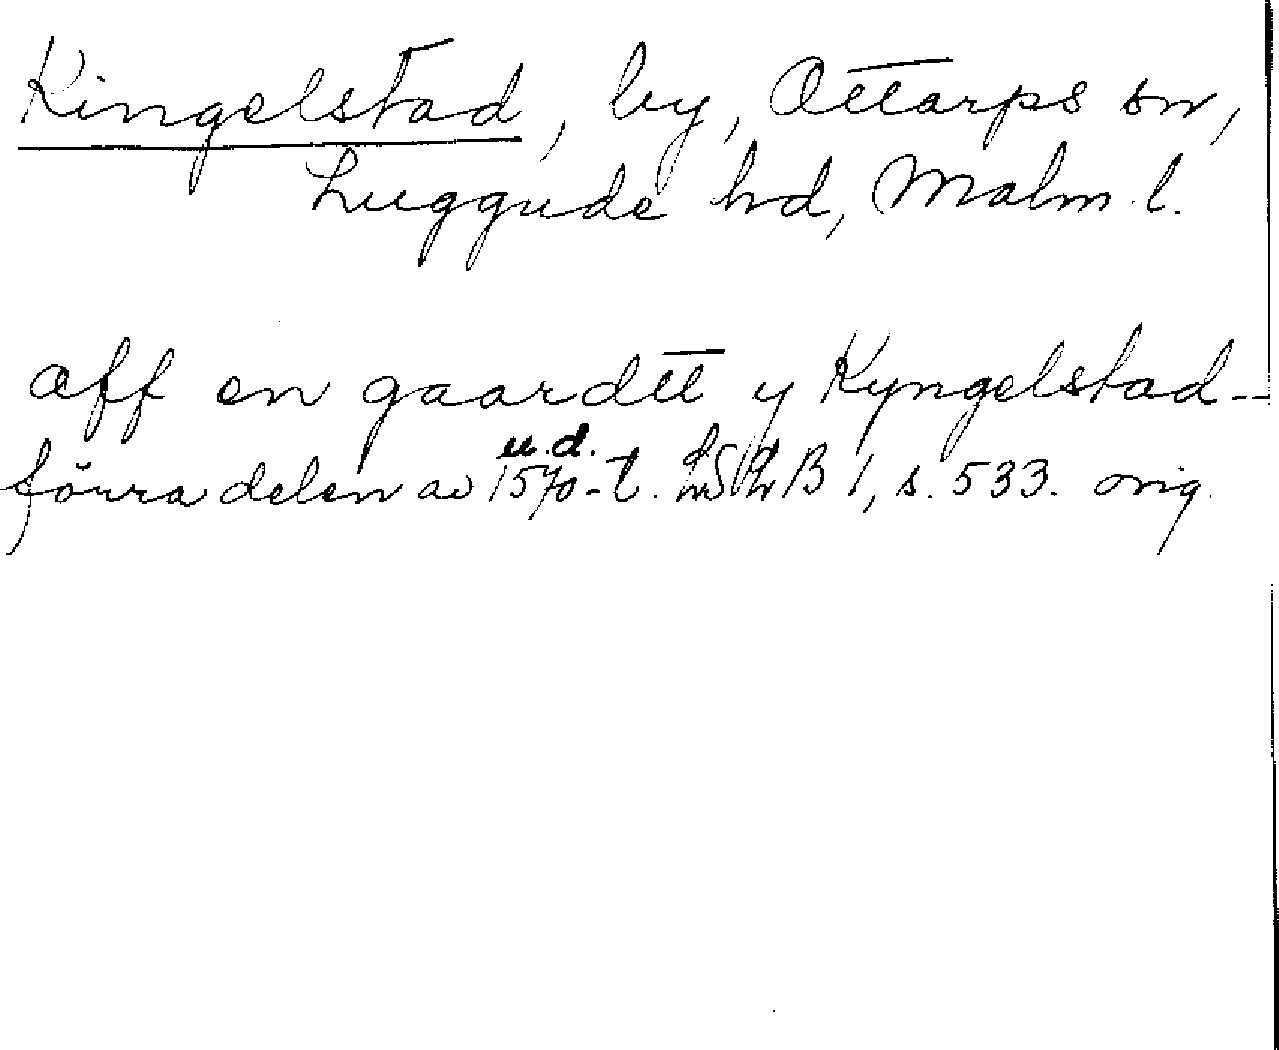 Kingelstad, by, Ottarps sn,
Luggude hd, Malm. l.
aff en gaardtt y Kyngelstad --
u.d.
förra delen av 1570-t. B 1, s. 533. orig.